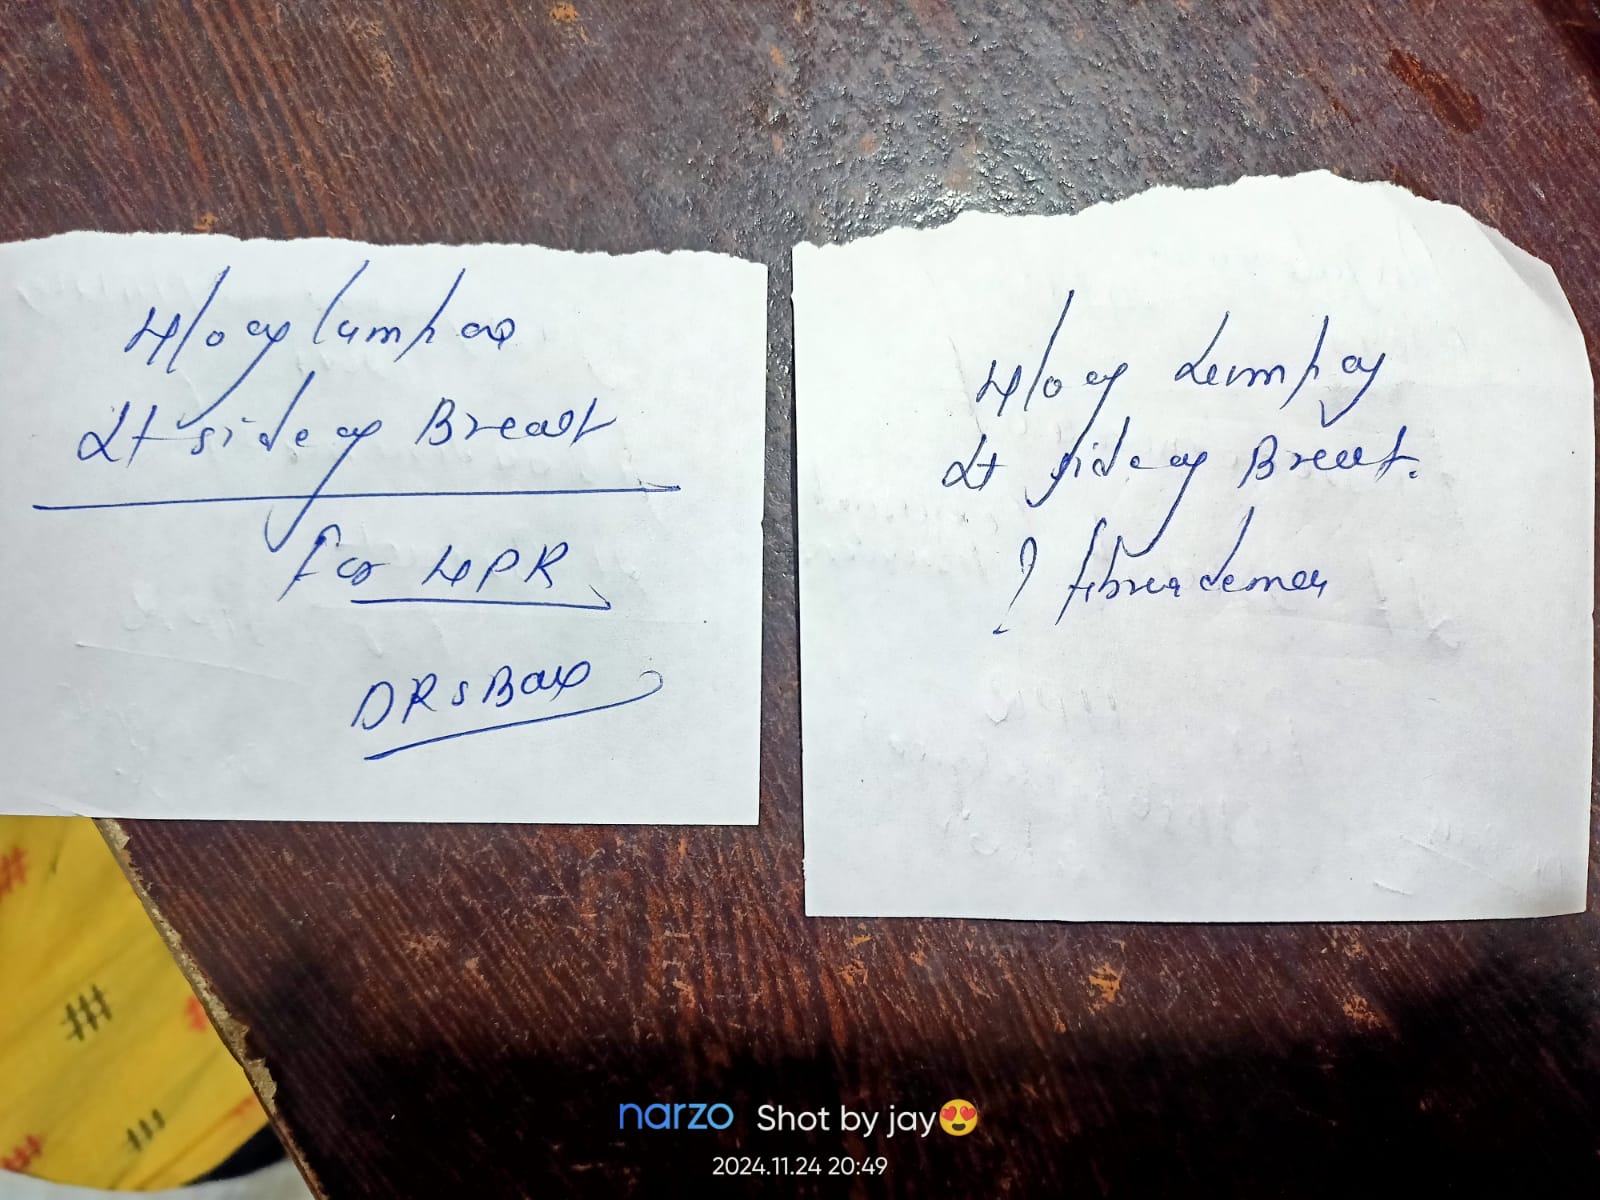 H/o of lump of
Lt side of Breast
For HPR
DR S Bax
H/o of Lump of
Lt side of Breast.
? fibroadenoma
narzo Shot by jay😍
2024.11.24 20:49